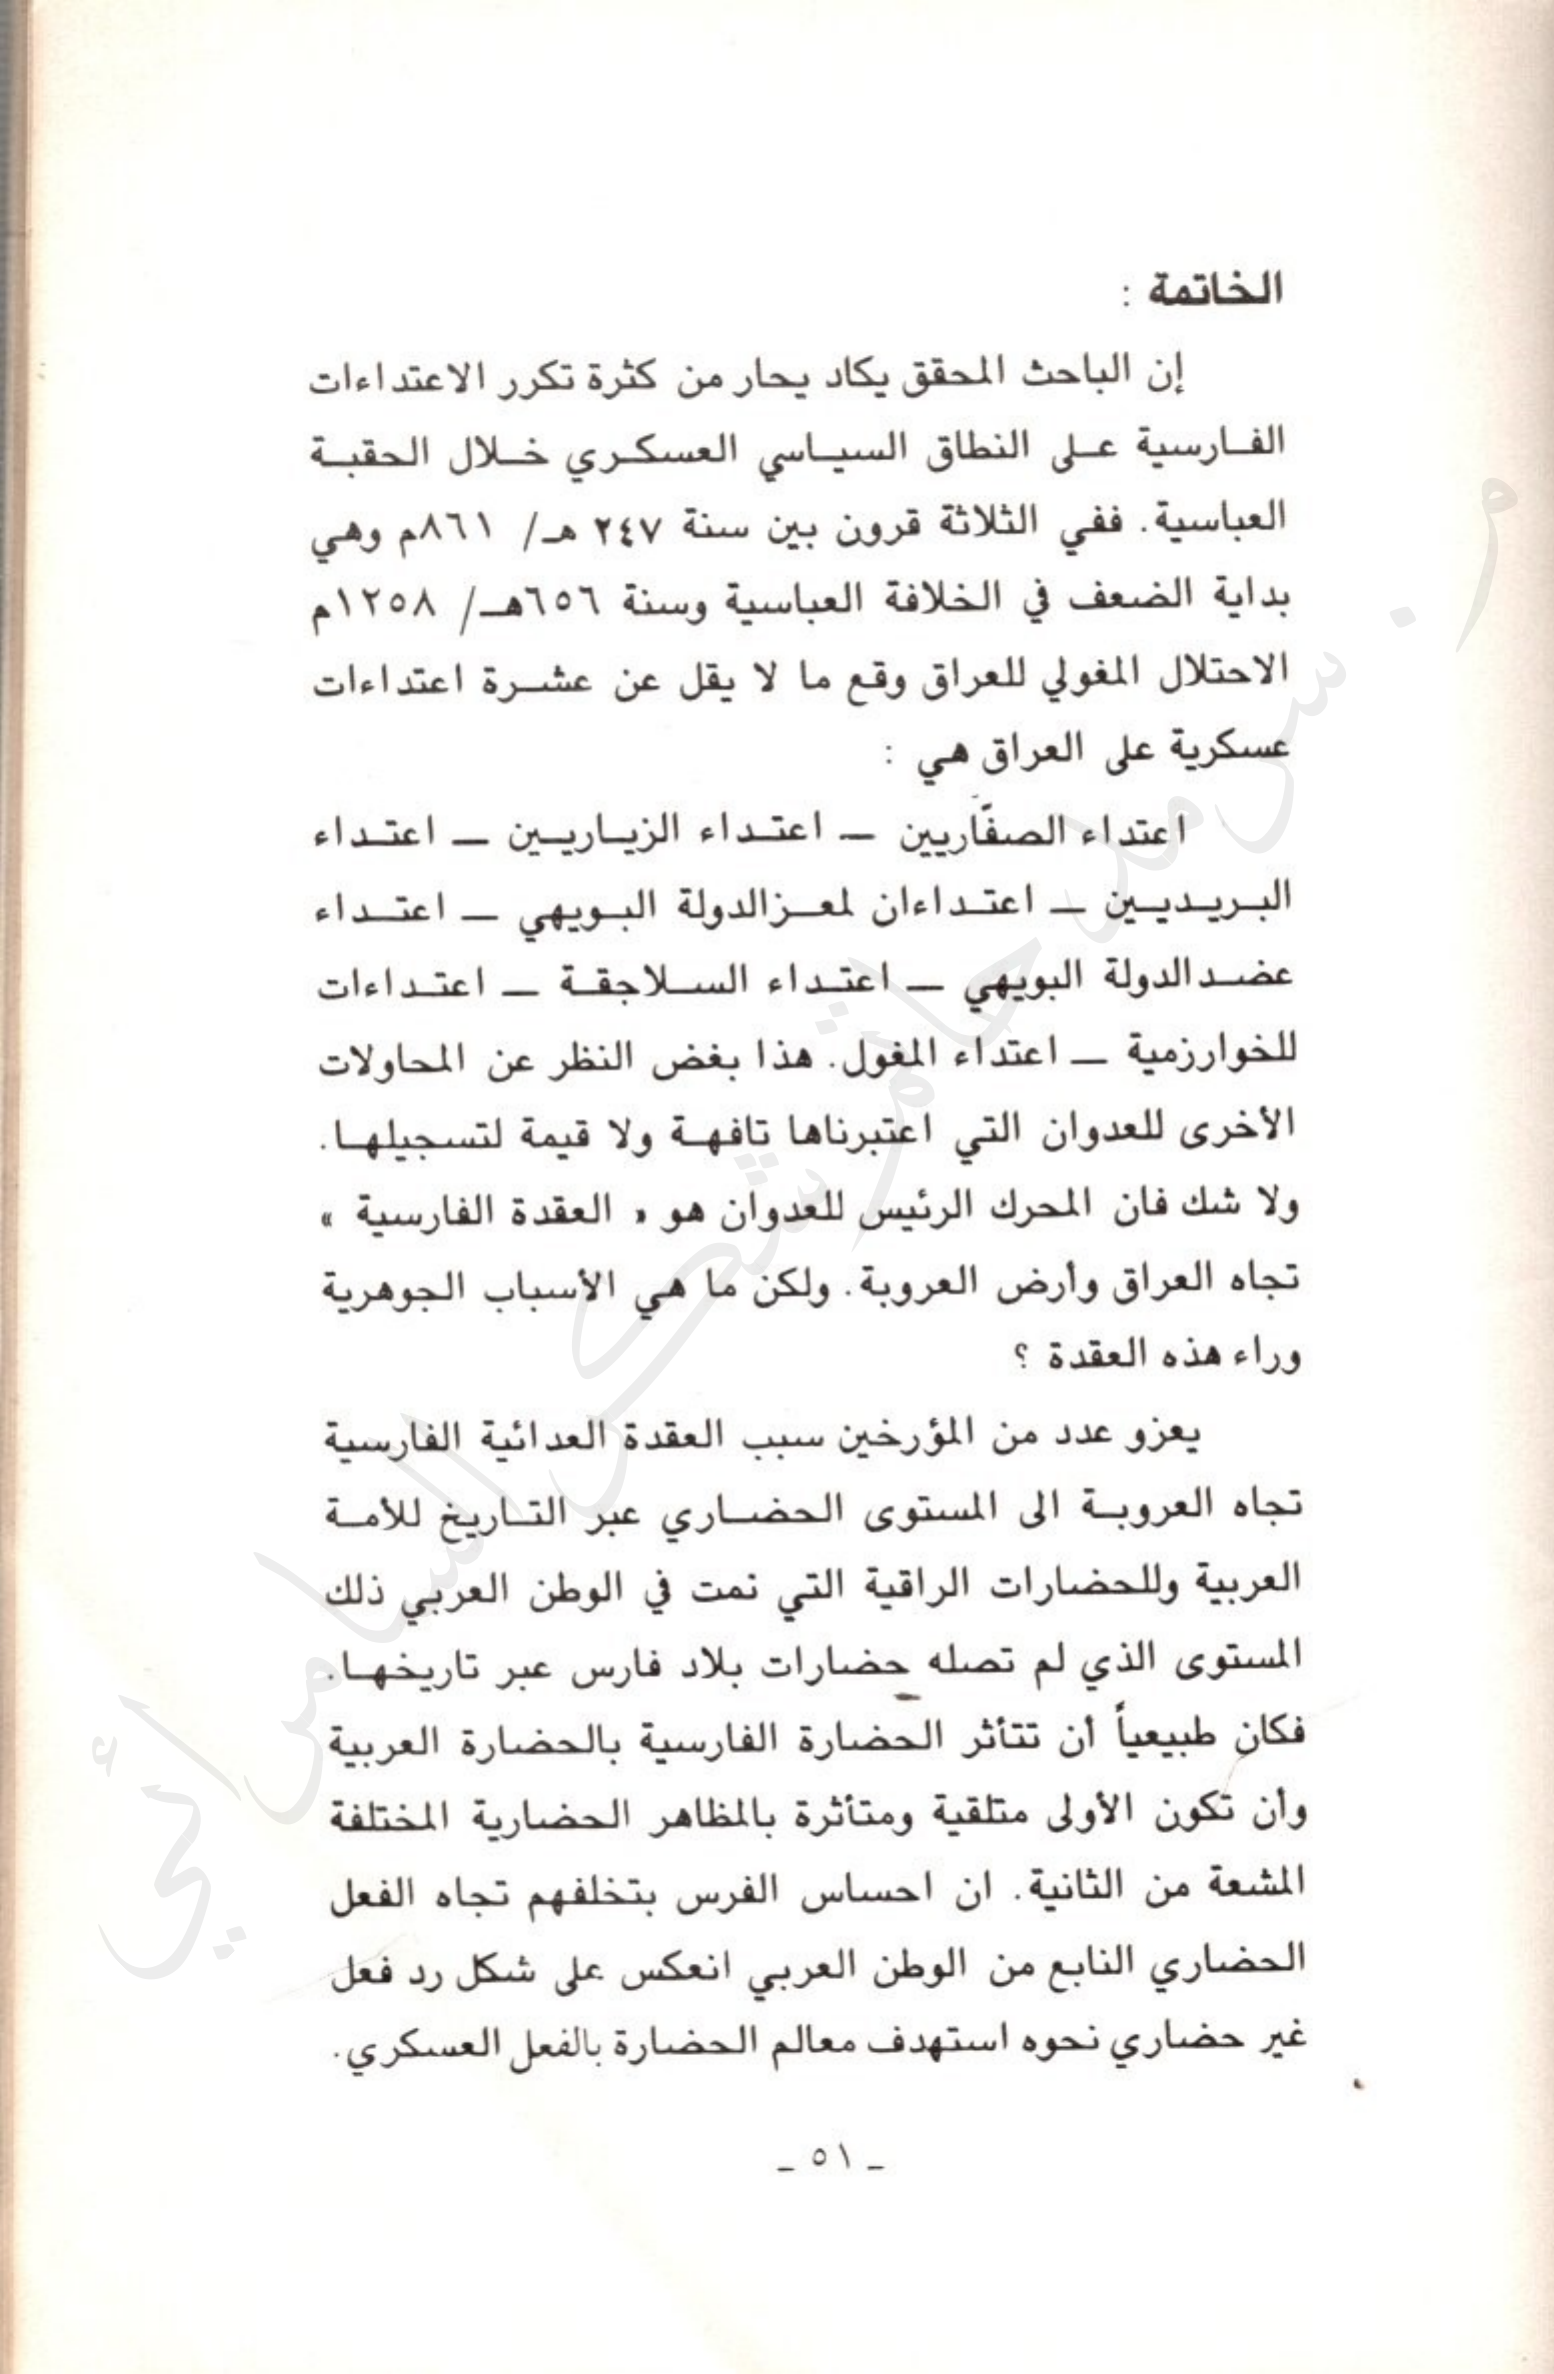 الخاتمة :
إن الباحث المحقق يكاد يحار من كثرة تكرر الاعتداءات
الفارسية على النطاق السياسي العسكري خلال الحقبة
العباسية. ففي الثلاثة قرون بين سنة ٢٤٧ هـ/ ٨٦١م وهي
بداية الضعف في الخلافة العباسية وسنة ٦٥٦هـ/ ١٢٥٨م
الاحتلال المغولي للعراق وقع ما لا يقل عن عشرة اعتداءات
عسكرية على العراق هي :
اعتداء الصفّاريين – اعتداء الزياريين – اعتداء
البريديين – اعتداءان لمعزالدولة البويهي – اعتداء
عضدالدولة البويهي – اعتداء السلاجقة – اعتداءات
للخوارزمية – اعتداء المغول. هذا بغض النظر عن المحاولات
الأخرى للعدوان التي اعتبرناها تافهة ولا قيمة لتسجيلها.
ولا شك فان المحرك الرئيس للعدوان هو « العقدة الفارسية »
تجاه العراق وأرض العروبة. ولكن ما هي الأسباب الجوهرية
وراء هذه العقدة ؟
يعزو عدد من المؤرخين سبب العقدة العدائية الفارسية
تجاه العروبة الى المستوى الحضاري عبر التاريخ للأمة
العربية وللحضارات الراقية التي نمت في الوطن العربي ذلك
المستوى الذي لم تصله حضارات بلاد فارس عبر تاريخها.
فكان طبيعياً أن تتأثر الحضارة الفارسية بالحضارة العربية
وأن تكون الأولى متلقية ومتأثرة بالمظاهر الحضارية المختلفة
المشعة من الثانية. ان احساس الفرس بتخلفهم تجاه الفعل
الحضاري النابع من الوطن العربي انعكس على شكل رد فعل
غير حضاري نحوه استهدف معالم الحضارة بالفعل العسكري.
– ٥١ –
م. سرمد حاتم شكر السامرائي